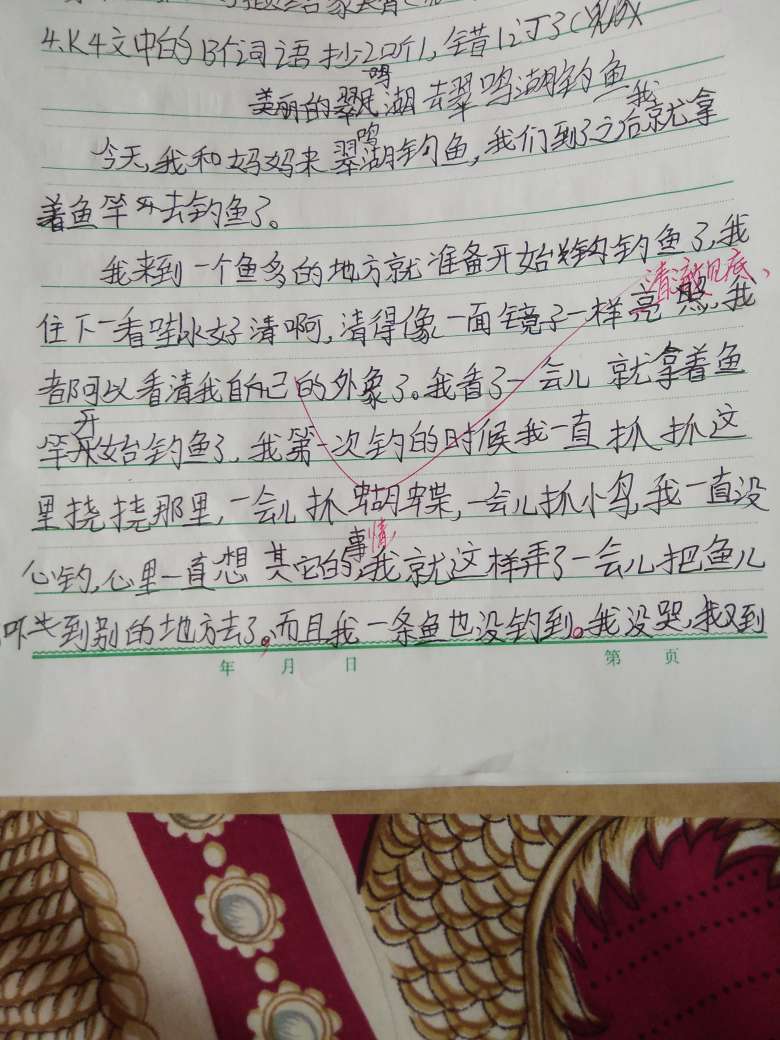 4.K4文中的13个词语抄2
鸣
美丽的翠 湖 去翠鸣湖钓鱼
今天,我和妈妈来翠鸣湖钓鱼,我们到了之后我就拿
着鱼竿 去钓鱼了。
我来到一个鱼多的地方就准备开始 钓鱼了,我
清澈见底、
住下一看哇水好清啊,清得像一面镜子一样亮 ,我
都可以看清我自己的外象了。我看了一会儿 就拿着鱼
竿开始钓鱼了,我第一次钓的时候我一直抓抓这
里挠挠那里,一会儿抓蝴蝶,一会儿抓小鸟,我一直没
心钓,心里一直想其它的事情,我就这样弄了一会儿把鱼儿
吓失到别的地方去了。而且我一条鱼也没钓到。我没哭,我又到
年 月 日 第 页